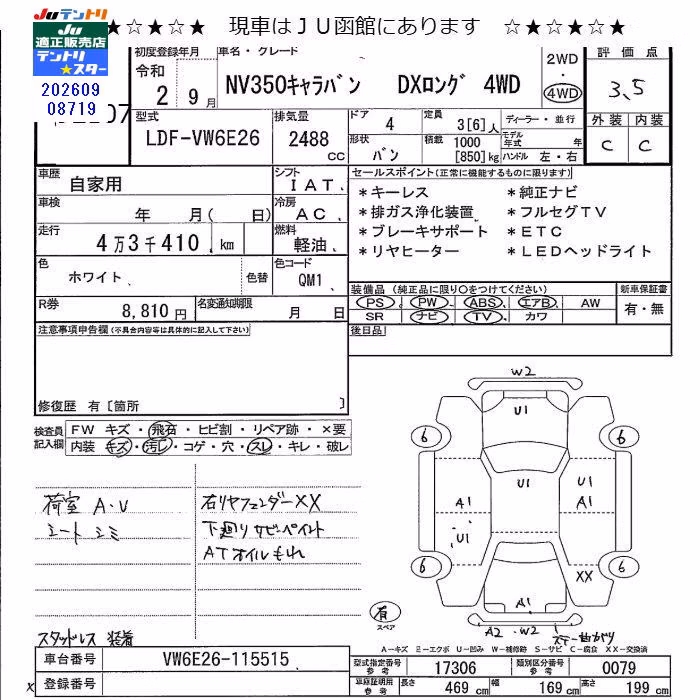 Juテントリ
JU
適正販売店
テントリ
★スター
202609
08719
★☆★☆★ 現車はJU函館にあります ☆★☆★☆★
初度登録年月
令和
2 9月
車名・グレード
NV350キャラバン DXロング 4WD
2WD
・
4WD
評価点
3.5
外装 内装
C C
型式
LDF-VW6E26
排気量
2488
cc
ドア 4
形状 バン
定員 3[6]人
積載 1000
[850]kg
ディーラー・並行
モデル年式 年
ハンドル 左・右
車歴
自家用
シフト
IAT
車検
年 月( 日)
冷房
AC
走行
4万3千410 km
燃料
軽油
色
ホワイト
色替
色コード
QM1
R券
8,810円
名変通知期限
月 日
セールスポイント(正常に機能するものに限ります)
*キーレス *純正ナビ
*排ガス浄化装置 *フルセグTV
*ブレーキサポート *ETC
*リヤヒーター *LEDヘッドライト
装備品 (純正品に限り○をつけてください)
PS PW ABS エアB AW
SR ナビ TV カワ
新車保証書
有・無
後日品
注意事項申告欄(不具合内容等は具体的に記入して下さい)
修復歴 有[箇所 ]
検査員
記入欄
FW キズ・飛石・ヒビ割・リペア跡・×要
内装 キズ・汚レ・コゲ・穴・スレ・キレ・破レ
荷室 A・U
シート シミ
右リヤフェンダーXX
下廻りサビペイント
ATオイルもれ
スタッドレス 装着
W2
U1
6 6
U1
A1 U1
A1
U1
6 6
XX
A1
A2 W2
有
スペア
A-キズ E-エクボ U-凹み W-補修跡 S-サビ C-腐食 XX-交換済
車台番号 VW6E26-115515
登録番号
型式指定番号
参考
17306
類別区分番号
参考
0079
車庫証明用
参考
長さ 469 cm 幅 169 cm 高さ 199 cm